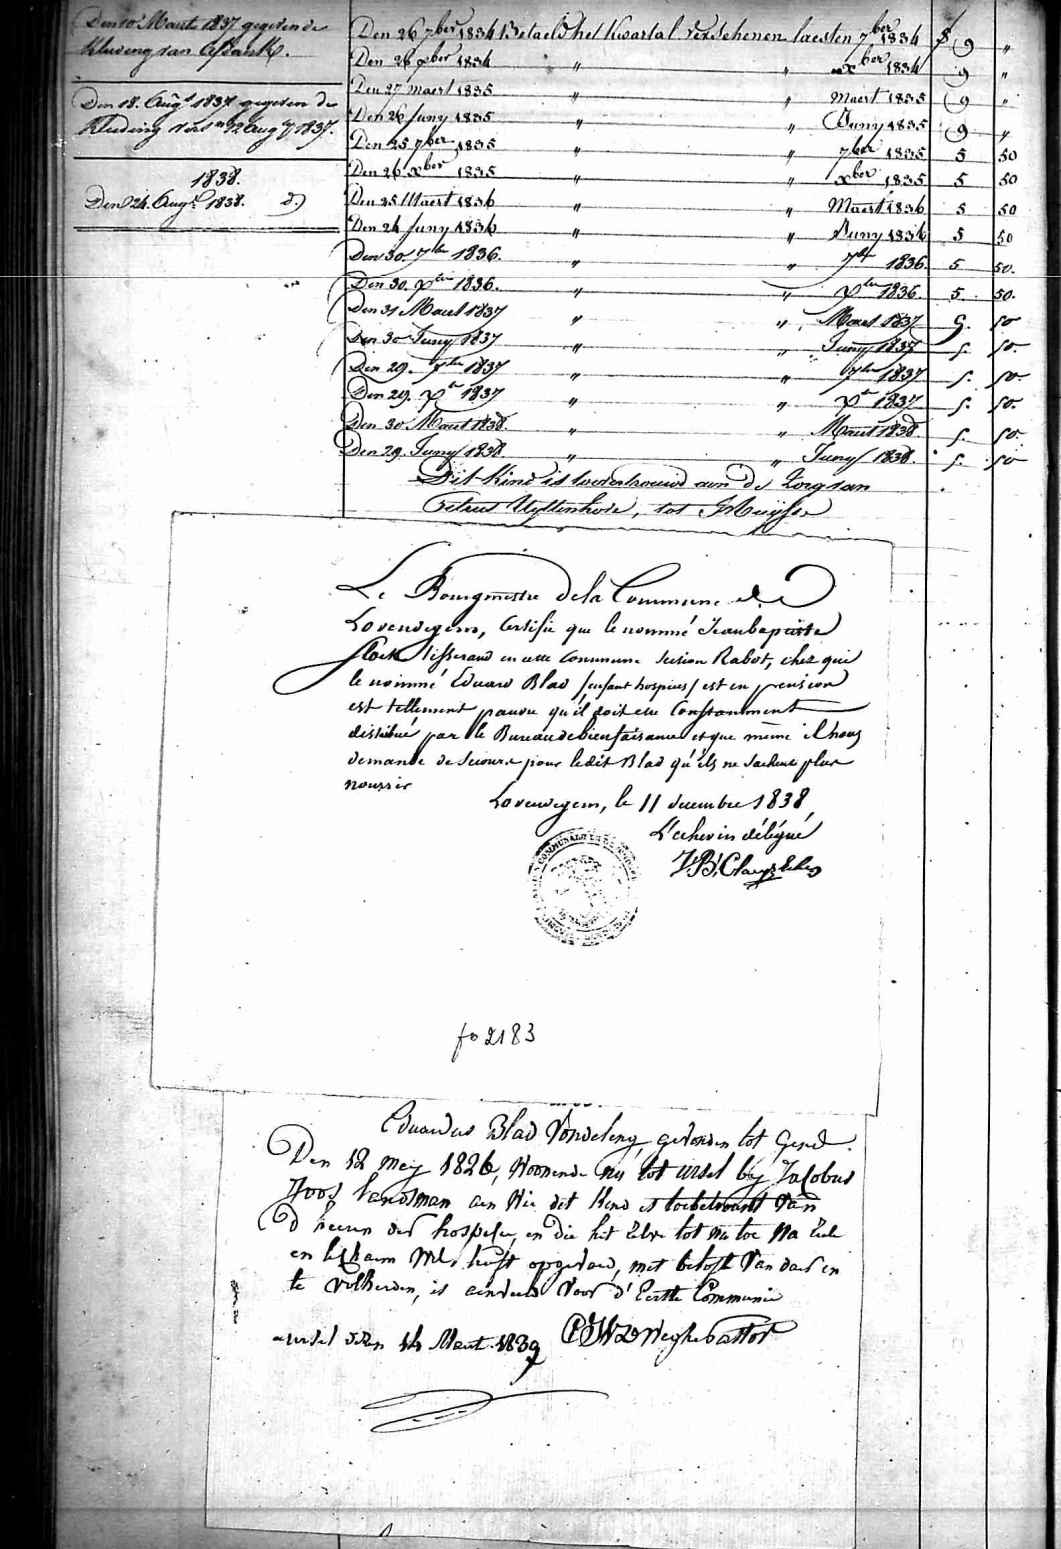 Den 10 Maart 1837 gegeven de
Kleeding van
Den 18. Augt 1837 gegeven de
Kleeding van 12 Aug 1837.
1838.
Den 24. Augt 1838. d.)
Den 26 7ber 1834 Betaeld het Kwartal verschenen laesten 7ber 1834 f 9 "
Den 26 xber 1834 " " xber 1834 9 "
Den 27 maert 1835 " " Maert 1835 9 "
Den 26 Juny 1835 " " Juny 1835 9 "
Den 25 7ber 1835 " " 7ber 1835 5 50
Den 26 xber 1835 " " xber 1835 5 50
Den 25 Maert 1836 " " Maert 1836 5 50
Den 24 Juny 1836 " " Juny 1836 5 50
Den 30 7ber 1836. " " 7ber 1836. 5 50.
Den 30. xber 1836. " " xber 1836. 5 50.
Den 31 Maert 1837 " " Maert 1837 5. 50
Den 30 Juny 1837 " " Juny 1837 5. 50.
Den 29. 7ber 1837 " " 7ber 1837 5. 50.
Den 29. xr 1837 " " xr 1837 5. 50.
Den 30 Maert 1838. " " Maert 1838 5. 50.
Den 29 Juny 1838. " " Juny 1838. 5. 50
Dit Kind is toevertrouwd aen de Zorg van
Petrus Uyttenhove, tot
Le Bourgmestre de la Commune de
Lovendegem, Certifie que le nommé Jean baptiste
tisserand en cette Commune section Rabot, chez qui
le nommé Eduard Blad /enfant hospices/ est en pension
est tellement pauvre qu'il doit etre Constamment
distribué par le Bureau de bienfaisance et que même il nous
demande de secours pour le dit Blad qu'ils ne sachent plus
nourrir
Lovendegem, le 11 decembre 1838
L'echevin délégué
J.B. Claeys
fo 2183
Eduardus Blad Vondeling, gevonden tot Gend
Den 12 mey 1826, Woonende nu tot ursel by Jacobus
landsman aen Wie dit Kind is toebetrouwt van
D'heeren der hospice, en die het Zelve tot nu toe na Ziele
en lichaem Wel heeft opgevoed, met belofte Van daer in
te Volherden, is aenveerd Voor d'Eerste Communie
ursel den 14 Maert 1839